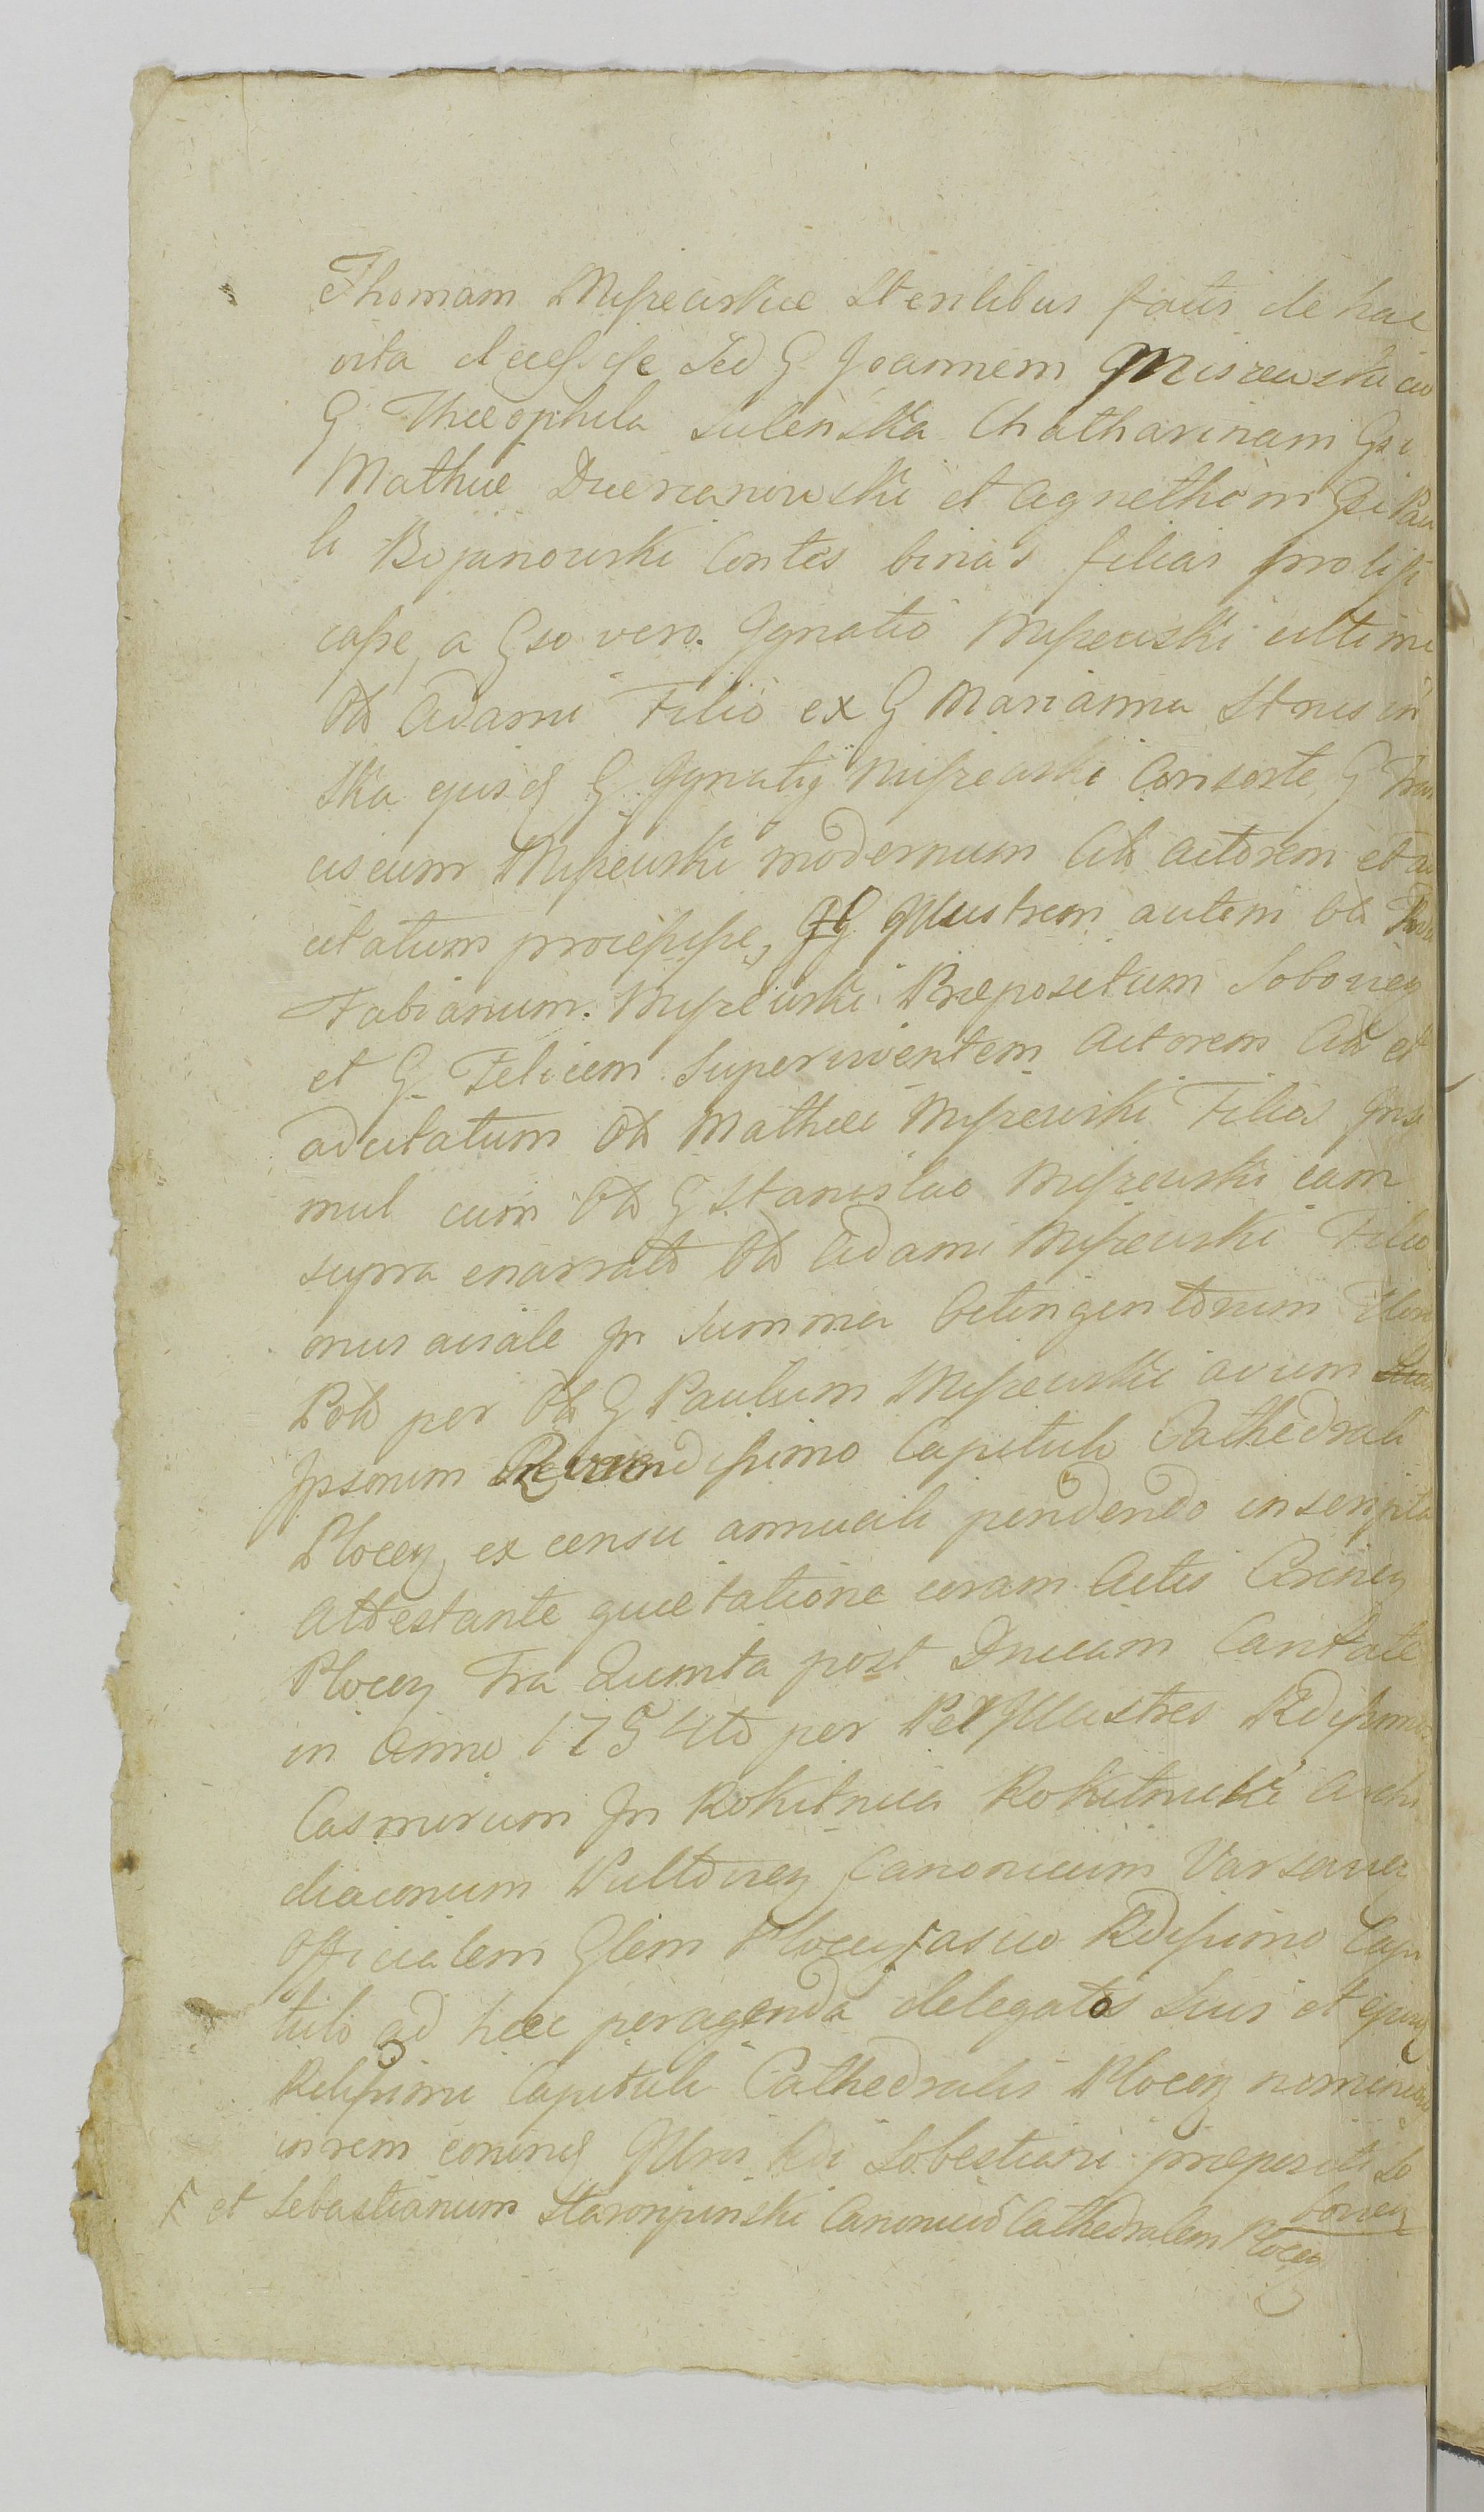 Thomam Miszewskie Sterilibus fatis de hac
vita decessisse Sed G Joannem Miszewski cu
G Theophila Sulenska Chatharinam Gsi
Mathiæ Dzierzanowski et Agnetham Gsi Pau
li Bojanowski Contes binas filias prolifi
casse, a Gso vero Ignatio Miszewski ultimi
Oli Adami Filio ex G Marianna
ska ejusd G Ignatij Miszewski Consorte G Fran
ciscum Miszewski modernum Ali Actorem et ad
citatum processisse, Illustrem autem oli
Fabianum Miszewski Præpositum Sobocen
et G Felicem Superviventem Actorem Ali et
adcitatum Oli Mathiæ Miszewski Filios Insi
mul cum Oli G Stanislao Miszewski eam
supra enarrato Oli Adami Miszewski Filio
onus avale In Summa Octingentorum Flor
Pol per Oli G Paulum Miszewski avum
Ipsorum Reverendissimo Capitulo Cathedrali
Plocen, ex censu annuali pendendo inscripta
Attestante quietatione coram Actis
Plocen Fra Quinta post Dnicam Cantate
in Anno 1754to per PerIllustres Rdissimos
Casmirum In Rokitnica Rokitnicki Archi
diaconum Pultovien Canonicum Varsavien
Officialem Glem Plocen F a suo Rdissimo Capi
tulo ad hæc peragenda delegatos Suis et ejusd
Rdissimi Capituli Cathedralis Plocen nominibus
in rem Illris Rdi Sobestiani præpositi So
bocen
F et Sebastianum Staropinski Canonicu Cathedralem Plocen